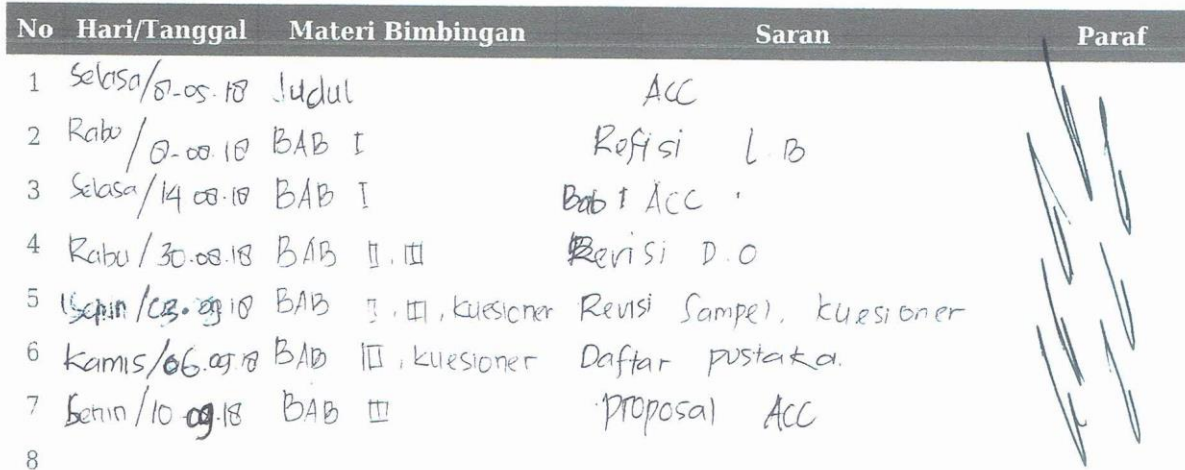 No Hari/Tanggal Materi Bimbingan Saran Paraf
1 Selasa/8-05-18 Judul ACC
2 Rabu/8-08-18 BAB I Refisi L.B
3 Selasa/14 08-18 BAB I Bab I ACC
4 Rabu/30.08.18 BAB II.III Revisi D.O
5 Senin/03.09 18 BAB II.III, kuesioner Revisi Sampel, kuesioner
6 Kamis/06.09.18 BAB III, kuesioner Daftar pustaka.
7 Senin/10 09.18 BAB III proposal ACC
8